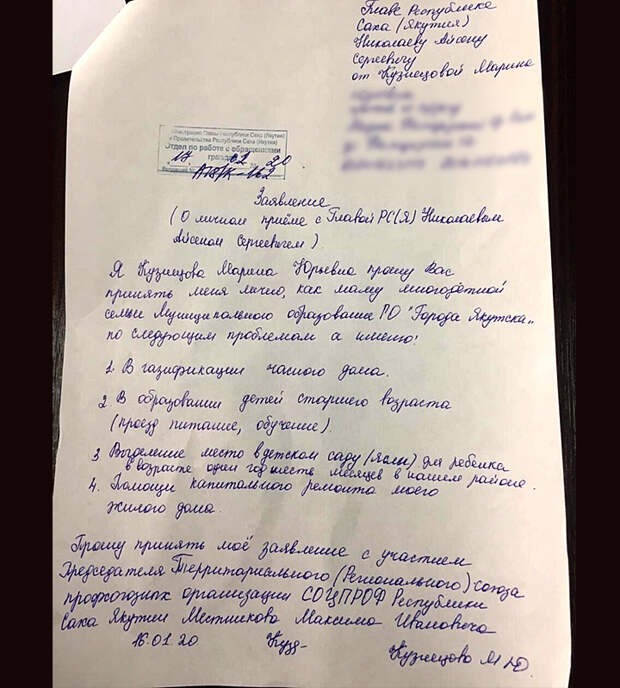 Главе Республике
Саха (Якутия)
Николаеву Айсену
Сергеевичу
от Кузнецовой Марине
Администрация Главы Республики Саха (Якутия)
и Правительства Республики Саха (Якутия)
Отдел по работе с обращениями
граждан
17 02 20
162
Заявление
(О личном приёме с Главой РС(Я) Николаевым
Айсеном Сергеевичем).
Я Кузнецова Марина Юрьевна прошу Вас
принять меня лично, как маму многодетной
семьи Муниципального образования ГО "Города Якутска"
по следующим проблемам а именно:
1. В газификации часного дома.
2 В образовании детей старшего возраста
(проезд питание, обучение).
3 Выделение место в детском саду (ясли) для ребенка
в возрасте один год шесть месяцев в нашем районе.
4. Помощи капитального ремонта моего
жилого дома.
Прошу принять моё заявление с участием
Председателя Территориального (Регионального) союза
профсоюзных организации СОЦПРОФ Республики
Саха Якутии Местникова Максима Ивановича
16.01.20 Кузн- Кузнецова М Ю.